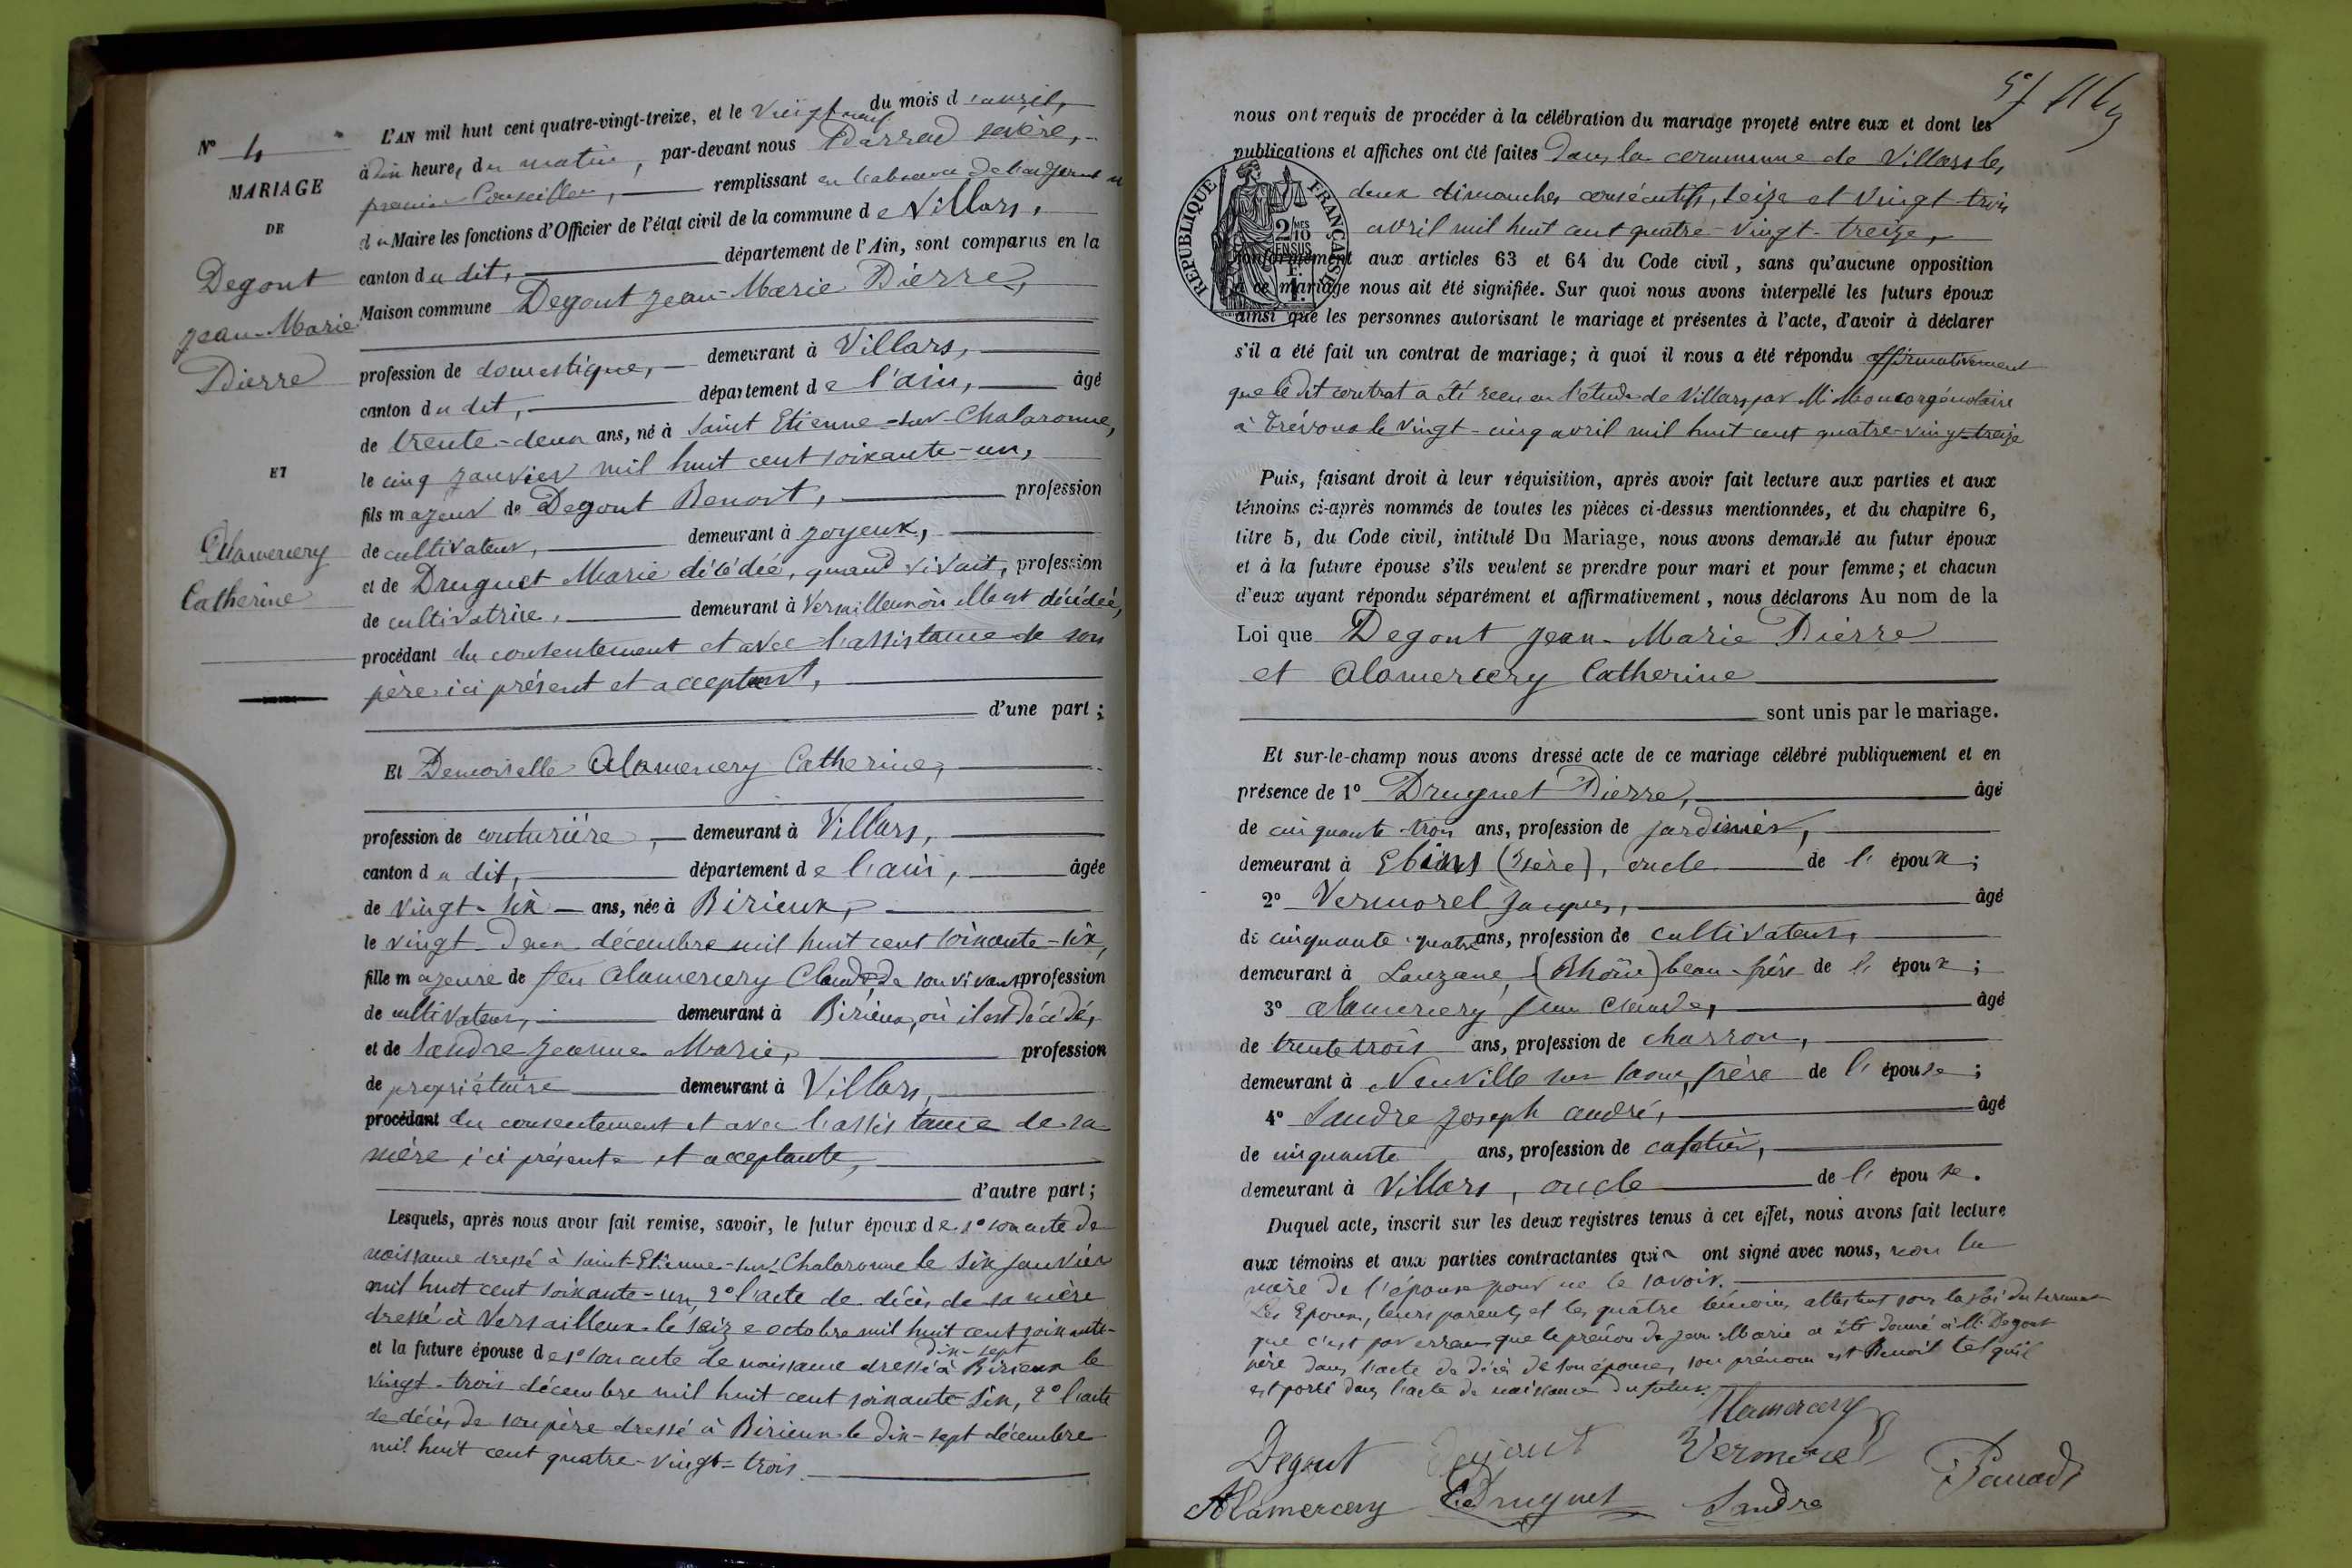 N° 4
MARIAGE
DE
Degout
Jean-Marie
Pierre
ET
Alamercery
Catherine
L'AN mil huit cent quatre-vingt-treize, et le vingt neuf du mois d'avril,
à dix heures du matin, par-devant nous
premier Conseiller, remplissant en l'absence de l'adjoint et
du Maire les fonctions d'Officier de l'état civil de la commune de Villars,
canton du dit, département de l'Ain, sont comparus en la
Maison commune Degout Jean-Marie Pierre,
profession de domestique, demeurant à Villars,
canton du dit, département de l'ain, âgé
de trente-deux ans, né à Saint Etienne-sur-Chalaronne,
le cinq janvier mil huit cent soixante-un,
fils majeur de Degout Benoit, profession
de cultivateur, demeurant à Joyeux,
et de Druguet Marie décédée, quand vivait, profession
de cultivatrice, demeurant à Versailleux où elle est décédée,
procédant du consentement et avec l'assistance de son
père ici présent et acceptant,
d'une part;
Et Demoiselle Alamercery Catherine,
profession de couturière, demeurant à Villars,
canton du dit, département de l'ain, âgée
de vingt-six ans, née à Birieux,
le vingt-deux décembre mil huit cent soixante-six,
fille majeure de feu Alamercery Claude, de son vivant profession
de cultivateur, demeurant à Birieux, où il est décédé,
et de Sandre Jeanne Marie, profession
de propriétaire demeurant à Villars,
procédant du consentement et avec l'assistance de sa
mère ici présente et acceptante,
d'autre part;
Lesquels, après nous avoir fait remise, savoir, le futur époux de 1° son acte de
naissance dressé à Saint-Etienne-sur-Chalaronne le six janvier
mil huit cent soixante-un, 2° l'acte de décès de sa mère
dressé à Versailleux le seize octobre mil huit cent soixante-
dix-sept
et la future épouse de 1° son acte de naissance dressé à Birieux le
vingt-trois décembre mil huit cent soixante-six, 2° l'acte
de décès de son père dressé à Birieux le dix-sept décembre
mil huit cent quatre-vingt-trois.
nous ont requis de procéder à la célébration du mariage projeté entre eux et dont les
publications et affiches ont été faites dans la commune de Villars les
deux dimanches consécutifs, seize et vingt-trois
avril mil huit cent quatre-vingt-treize,
conformément aux articles 63 et 64 du Code civil, sans qu'aucune opposition
à ce mariage nous ait été signifiée. Sur quoi nous avons interpellé les futurs époux
ainsi que les personnes autorisant le mariage et présentes à l'acte, d'avoir à déclarer
s'il a été fait un contrat de mariage; à quoi il nous a été répondu affirmativement
que le dit contrat a été reçu en l'étude de Villars par Me Moncorgé notaire
à Trévoux le vingt-cinq avril mil huit cent quatre-vingt-treize
REPUBLIQUE FRANÇAISE
2/10 MES
EN SUS
Puis, faisant droit à leur réquisition, après avoir fait lecture aux parties et aux
témoins ci-après nommés de toutes les pièces ci-dessus mentionnées, et du chapitre 6,
titre 5, du Code civil, intitulé Du Mariage, nous avons demandé au futur époux
et à la future épouse s'ils veulent se prendre pour mari et pour femme; et chacun
d'eux ayant répondu séparément et affirmativement, nous déclarons Au nom de la
Loi que Degout Jean-Marie Pierre
et Alamercery Catherine
sont unis par le mariage.
Et sur-le-champ nous avons dressé acte de ce mariage célébré publiquement et en
présence de 1° Druguet Pierre, âgé
de cinquante-trois ans, profession de jardinier,
demeurant à (Isère), oncle de l'époux;
2° Vermorel Jacques, âgé
de cinquante-quatre ans, profession de cultivateur,
demeurant à Lauzane, (Rhône) beau-frère de l'époux;
3° Alamercery Jean Claude, âgé
de trente trois ans, profession de charron,
demeurant à Neuville sur Saône, frère de l'épouse;
4° Sandre Joseph André, âgé
de cinquante ans, profession de cafetier,
demeurant à Villars, oncle de l'épouse.
Duquel acte, inscrit sur les deux registres tenus à cet effet, nous avons fait lecture
aux témoins et aux parties contractantes qui ont signé avec nous, non la
mère de l'épouse pour ne le savoir.
Les Epoux, leurs parents et les quatre témoins attestent sous la foi du serment
que c'est par erreur que le prénom de Jean Marie a été donné à M. Degout
père dans l'acte de décès de son épouse, son prénom est Benoit tel qu'il
est porté dans l'acte de naissance du futur.
Alamercery
Degout Degout Vermorel
Alamercery Druguet Sandre